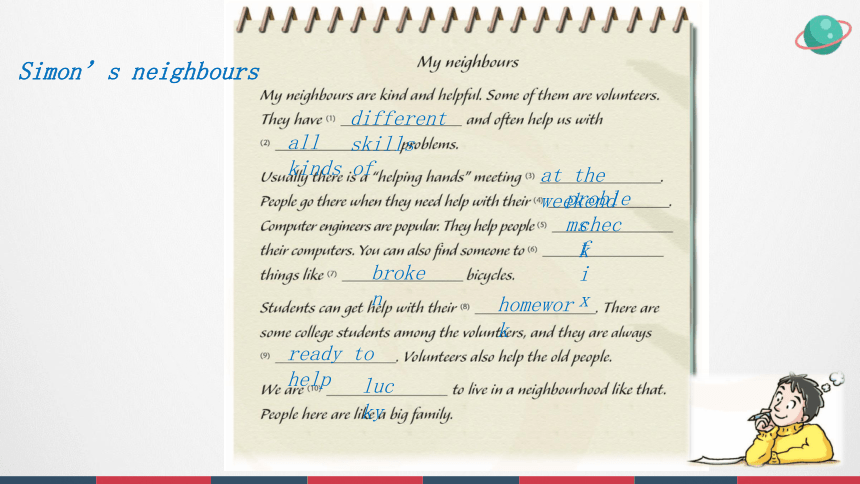 Simon’s neighbours
My neighbours
My neighbours are kind and helpful. Some of them are volunteers.
They have (1) different skills and often help us with
(2) all kinds of problems.
Usually there is a “helping hands” meeting (3) at the weekend.
People go there when they need help with their (4) problems.
Computer engineers are popular. They help people (5) check
their computers. You can also find someone to (6) fix
things like (7) broken bicycles.
Students can get help with their (8) homework. There are
some college students among the volunteers, and they are always
(9) ready to help. Volunteers also help the old people.
We are (10) lucky to live in a neighbourhood like that.
People here are like a big family.